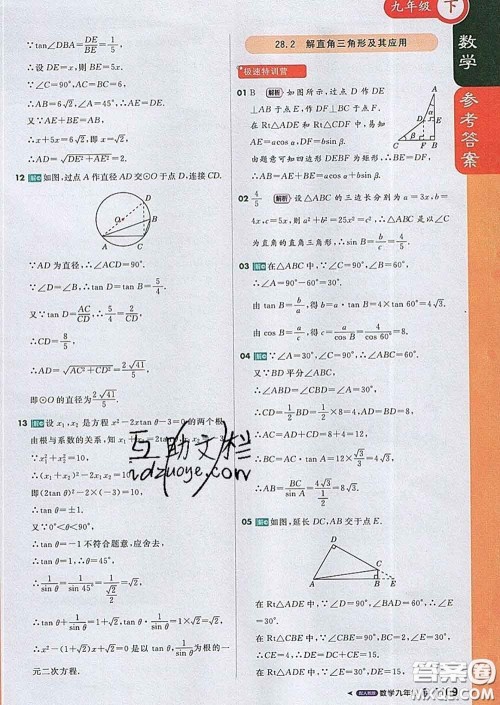 九年级 下
数学
参考答案
∵tan∠DBA=DE/BE=1/5,
∴设DE=x,则BE=5x.
∵∠C=90°,AC=BC=6,
∴AB=6√2,∠A=45°.
又∵AE=BE=AB,
∴x+5x=6√2,即x=√2.
∴AD=√(DE²+AE²)=2.
12 解 如图,过点A作直径AD交⊙O于点D,连接CD.
D
O
A
B
C
∵AD为直径,∴∠ACD=90°.
又∵∠D=∠B,∴tan B=tan D=5/4.
又∵tan D=AC/CD,∴2/CD=5/4.
∴CD=8/5,
∴AD=√(AC²+CD²)=2√41/5.
即⊙O的直径为2√41/5.
13 解 设x₁,x₂是方程x²-2xtanθ-3=0的两个根
由根与系数的关系,知x₁+x₂=2tan
∵x₁²+x₂²=10,
∴(x₁+x₂)²-2x₁x₂=10.
即(2tanθ)²-2×(-3)=10.
∴tanθ=±1.
又∵0°<θ<90°,
∴tanθ=-1不符合题意,应舍去,
∴tanθ=1,∴θ=45°,
∴sinθ=1/√2=√2/2.
∴tanθ+1/sinθ=1+√2,tanθ·1/sinθ=1×√2=√2.
∴x²-(1+√2)x+√2=0是以tanθ,1/sinθ为根的一
元二次方程.
28.2 解直角三角形及其应用
极速特训营
01 B 解析 如图所示,过点D作DE
⊥AB于点E,作DF⊥BC于点F.
在Rt△ADE和Rt△CDF中,易知
AE=acosα,DF=bsinβ.
由题意可知四边形DEBF为矩形,∴BE=DF,
∴AB=AE+BE=acosα+bsinβ.
02 4/5 解析 设△ABC的三边长分别为a=3x,b=
4x,c=5x,则a²+b²=25x²=c²,∴△ABC是以∠C
为直角的直角三角形,∴sin B=b/c=4/5.
03 解 在△ABC中,∵∠C=90°,∠B=60°,
∴∠A=90°-60°=30°.
由tan B=b/a,得b=a·tan 60°=4√3.
由cos B=a/c,得c=a/cos 60°=4/cos 60°=8.
04 解 ∵∠A=30°,∠C=90°,∴∠ABC=60°.
又∵BD平分∠ABC,
∴∠ABD=∠CBD=∠A=30°,
∴CD=1/2BD=1/2×8=4,
∴BC=AC·tan A=12×√3/3=4√3,
∴AB=BC/sin A=4√3/(1/2)=8√3.
05 解 如图,延长DC,AB交于点E.
D
C
A
B
E
在Rt△ADE中,∵∠D=90°,∠BAD=60°,∴∠E
=30°.
在Rt△CBE中,∵∠CBE=90°,BC=√3,∠E=
30°,
∴CE=2√3,∴DE=CE+CD=6√3.
在Rt△ADE中,∵∠D=90°,∠E=30°,
互助文栏
idzuoye.com
配人教版 数学九年
答案圈